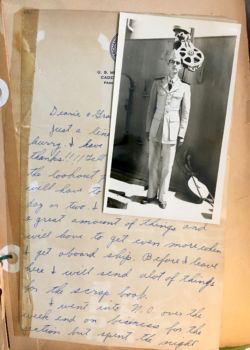 U. S. M
CADE
Dearie & Gra
Just a line
hurry. I have
thanks!!!
the lookout f
will have to
day or two. I
a great amount of things and
will have to get even more when
I get aboard ship. Before I leave
here I will send a lot of things
for the scrap book.
I went into N.O. over the
week end on business for the
section but spent the night